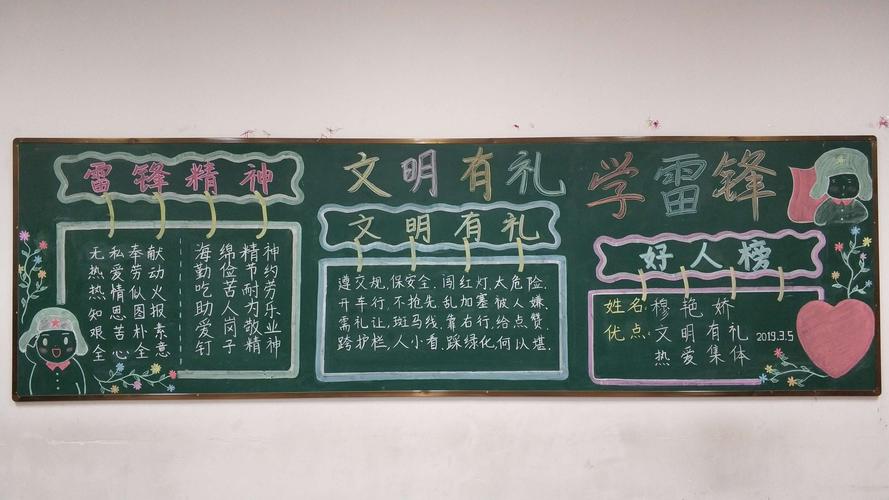 雷锋精神
无私奉献
热爱劳动
热情似火
知恩图报
艰苦朴素
全心全意
海绵精神
勤俭节约
吃苦耐劳
助人为乐
爱岗敬业
钉子精神
文明有礼 学雷锋
文明有礼
遵交规,保安全.闯红灯,太危险.
开车行,不抢先.乱加塞,被人嫌.
需礼让,斑马线.靠右行,给点赞.
跨护栏,人小看.踩绿化,何以堪.
好人榜
姓名:穆艳娇
优点:文明有礼
热爱集体
2019.3.5